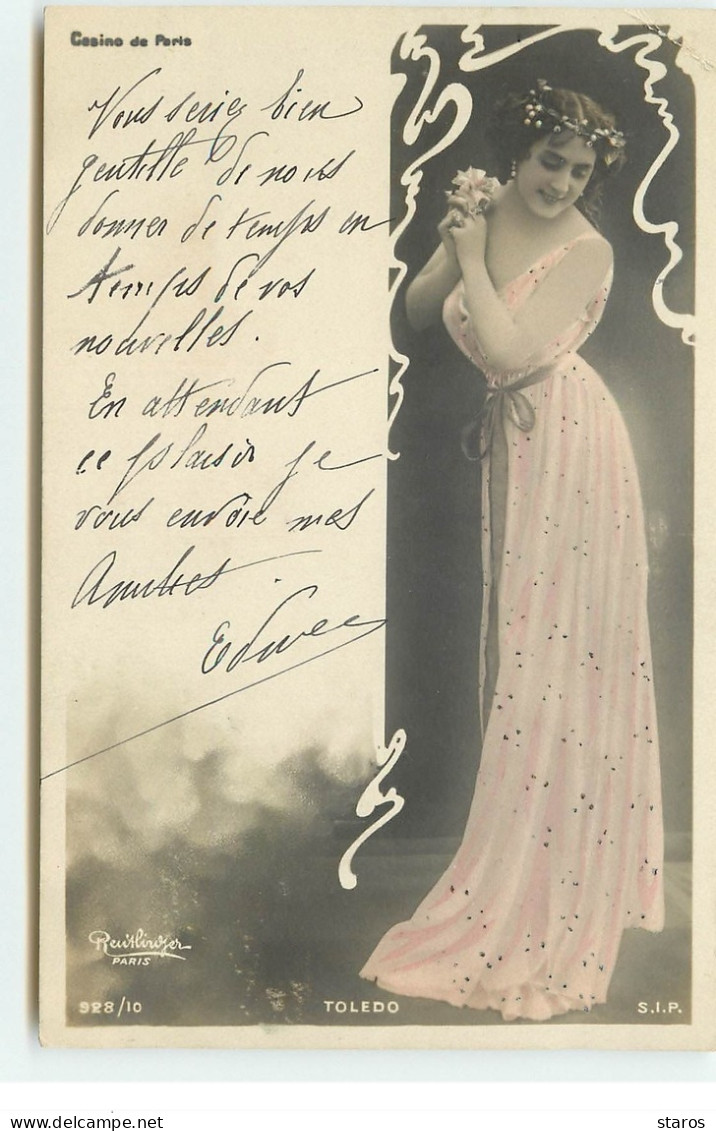 Casino de Paris
Vous seriez bien
gentille de nous
donner de temps en
temps de vos
nouvelles.
En attendant
ce plaisir je
vous envoie mes
Amitiés
Edmée
Reutlinger
PARIS
928/10
TOLEDO
S.I.P.
staros